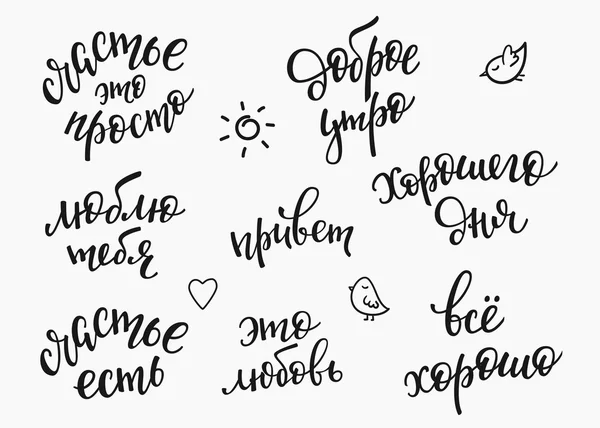 счастье
это
просто
доброе
утро
люблю
тебя
привет
хорошего
дня
счастье
есть
это
любовь
всё
хорошо